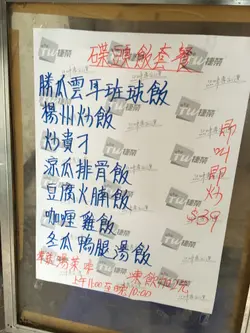 碟頭飯套餐
勝瓜雲耳班球飯
楊州炒飯
炒貴刁
涼瓜排骨飯
豆腐火腩飯
咖喱雞飯
冬瓜鴨腿湯飯
叫
即
炒
$39
凍飲